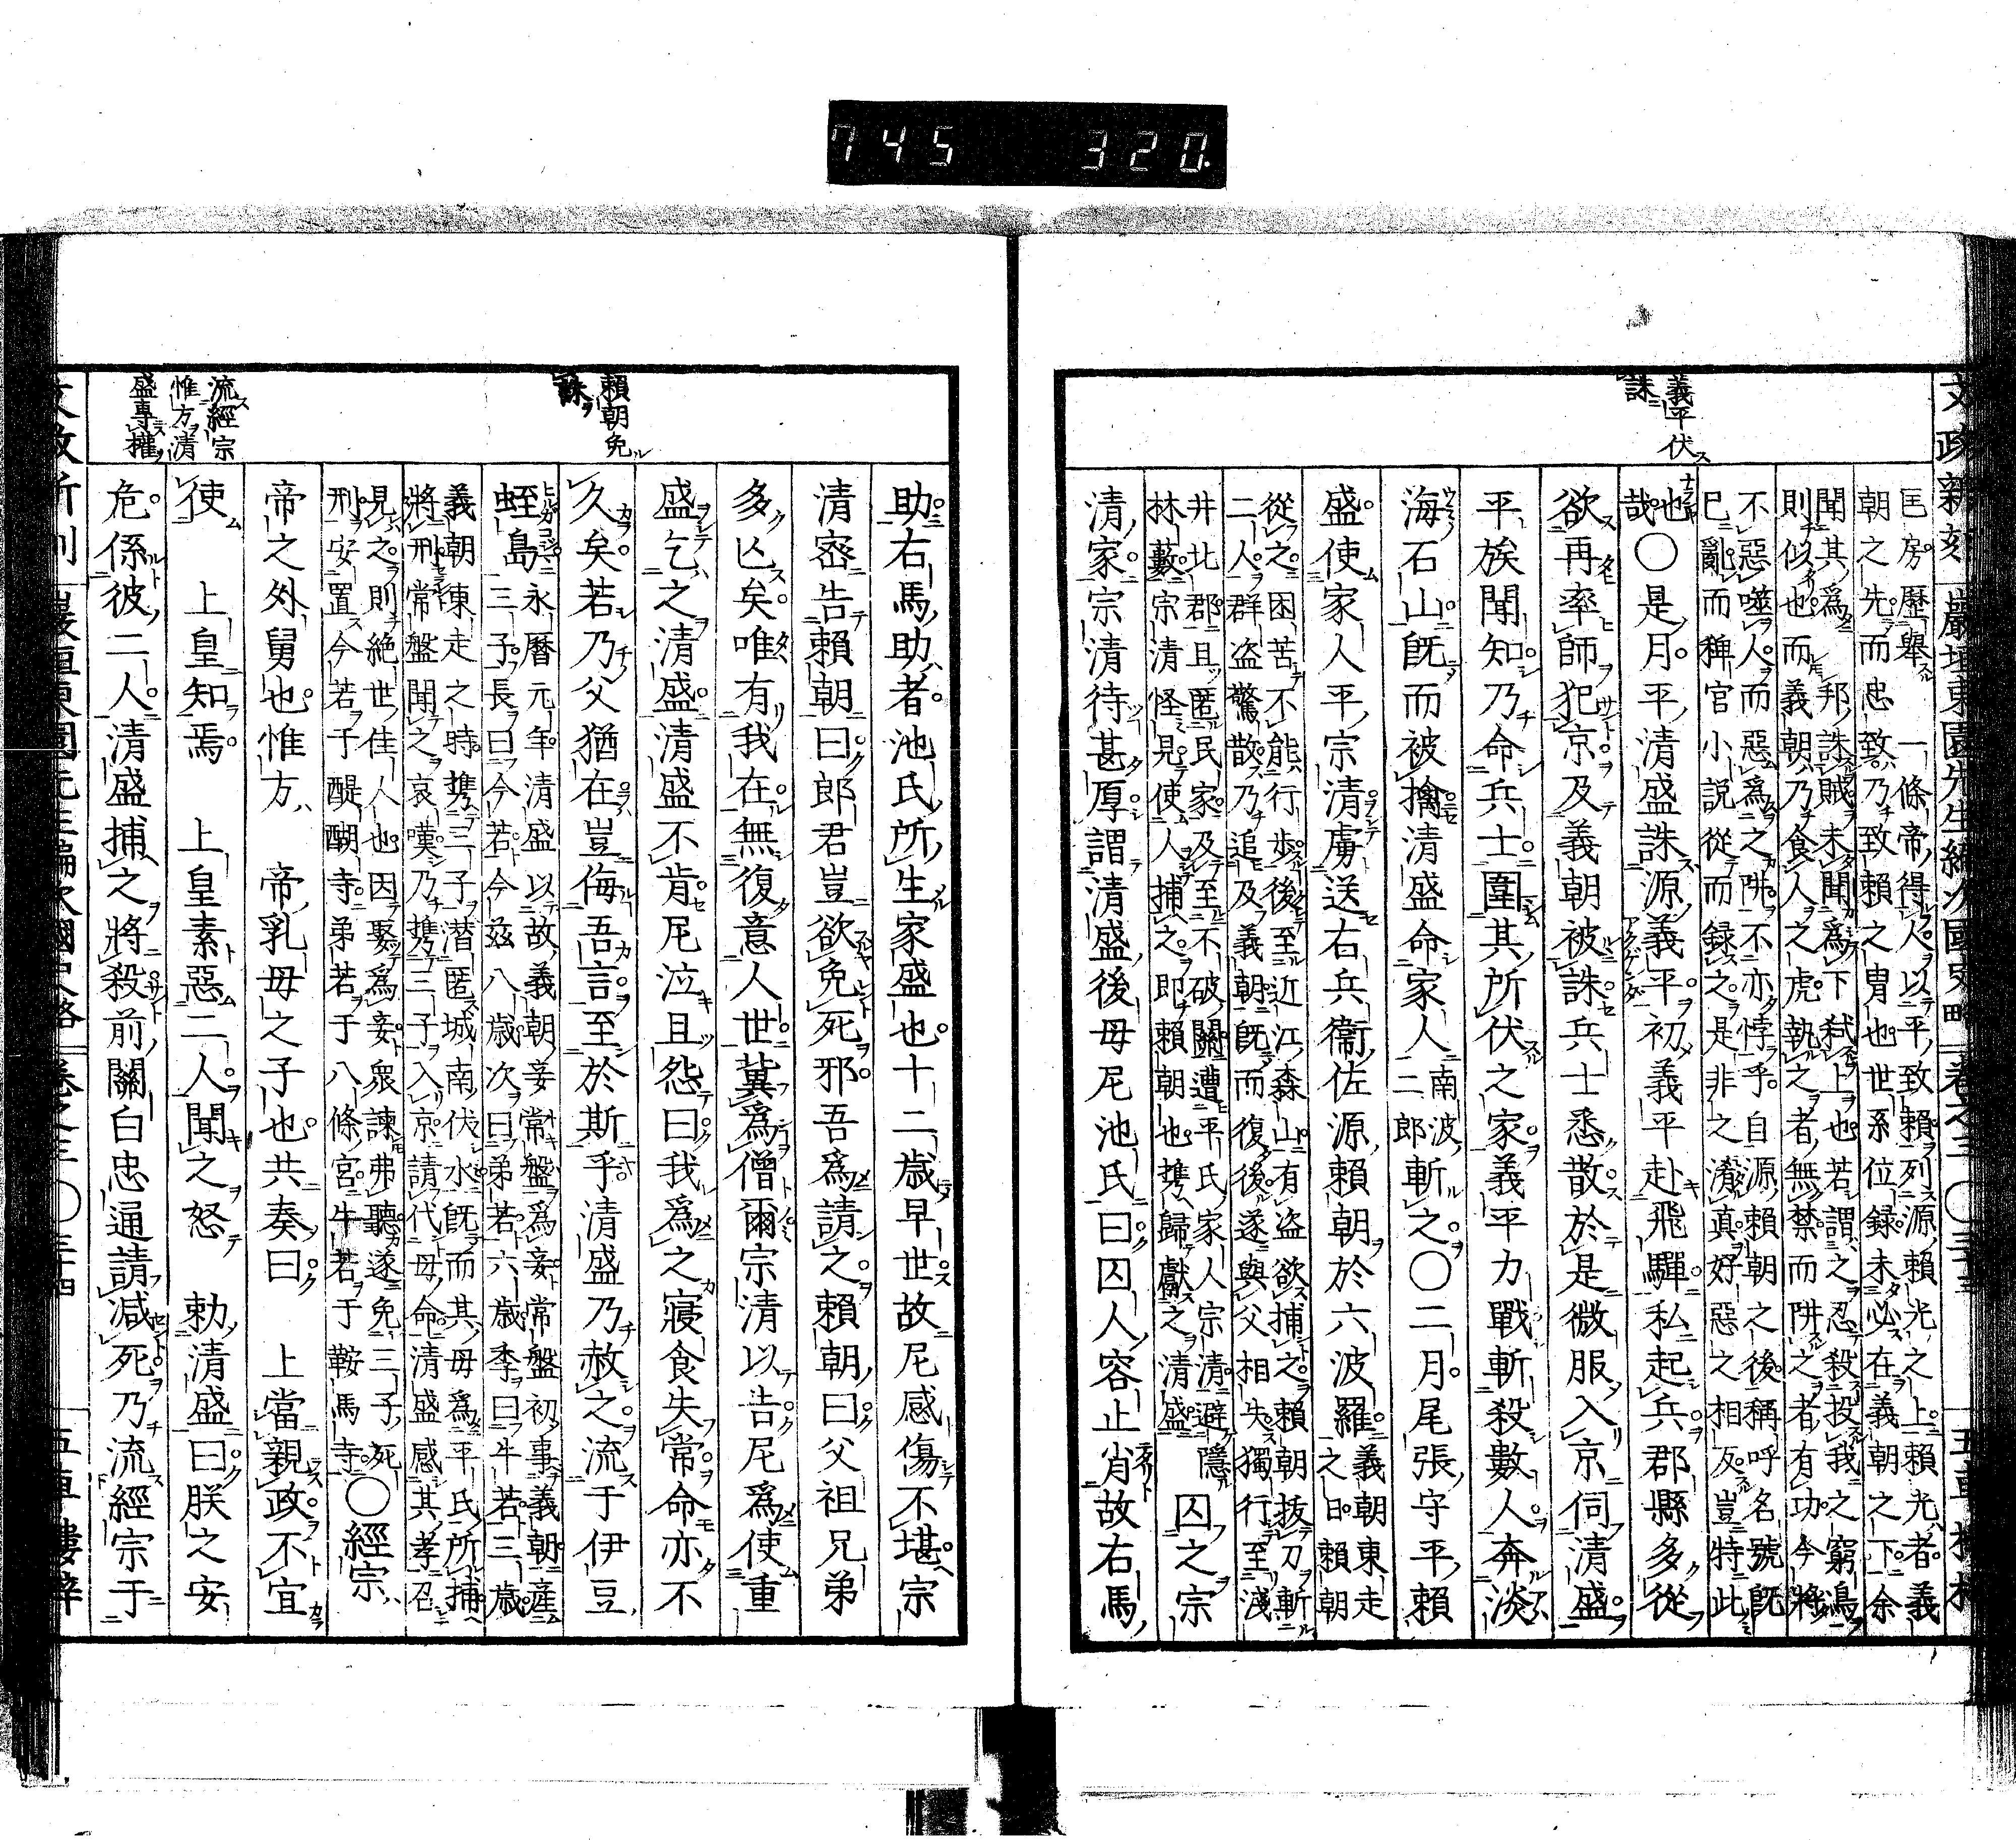 745 320.
文政新刻 巖垣東園先生編次國史略 卷之三 〇三十三 五車樓梓
義平伏
誅
匡房歷舉一條帝得人以平致賴列源賴光之上賴光者義
朝之先而忠致乃致賴之冑也世系位錄未必在義朝之下余
聞其爲邦誅賊未聞爲下弑上也若謂之忍殺投我之窮鳥
則似也而義朝乃食人之虎執之者無禁而阱之者有功今將
不惡噬人而惡爲之阱不亦悖乎自源賴朝之後稱呼名號既
已亂而稗官小說從而録之是非之淆真好惡之相反豈特此
也
哉〇是月平清盛誅源義平初義平赴飛驒私起兵郡縣多從
欲再率師犯京及義朝被誅兵士悉散於是微服入京伺清盛
平族聞知乃命兵士圍其所伏之家義平力戰斬殺數人奔淡
海石山既而被擒清盛命家人南波
二郎斬之〇二月尾張守平賴
盛使家人平宗清虜送右兵衞佐源賴朝於六波羅義朝東走
之日賴朝
從之困苦不能行步後至近江森山有盜欲捕之賴朝拔刀斬
二人群盜驚散乃追及義朝既而復後遂與父相失獨行至淺
井北郡且匿民家及至不破關遭平氏家人宗清避隱
林藪宗清怪見使人捕之即賴朝也携歸獻之清盛囚之宗
清家宗清待甚厚謂清盛後母尼池氏曰囚人容止肖故右馬
助右馬助者池氏所生家盛也十二歲早世故尼感傷不堪宗
清密告賴朝曰郎君豈欲免死邪吾爲請之賴朝曰父祖兄弟
多亾矣唯有我在無復意人世冀爲僧爾宗清以告尼爲使重
盛乞之清盛清盛不肯尼泣且怨曰我爲之寢食失常命亦不
久矣若乃父猶在豈侮吾言至於斯乎清盛乃赦之流于伊豆
蛭島永曆元年清盛以故義朝妾常盤爲妾常盤初事義朝產
三子長曰今若今茲八歲次曰弟若六歲季曰牛若三歲
義朝東走之時携三子潛匿城南伏水既而其母爲平氏所捕
將刑常盤聞之哀嘆乃携三子入京請代母命清盛感其孝召
見之則絕世佳人也因娶爲妾衆諫弗聽遂免三子死
刑安置今若于醍醐寺弟若于八條宮牛若于鞍馬寺〇經宗
帝之外舅也惟方 帝乳母之子也共奏曰 上當親政不宜
使 上皇知焉 上皇素惡二人聞之怒 勅清盛曰朕之安
危係彼二人清盛捕之將殺前關白忠通請減死乃流經宗于
賴朝免
誅
流經宗
惟方清
盛專權
文政新刻 巖垣東園先生編次國史略 卷之三 〇三十四 五車樓梓